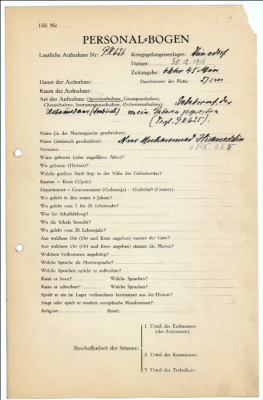 Lfd. Nr
PERSONAL-BOGEN
Lautliche Aufnahme Nr: PK 626 Kriegsgefangenenlager:
Datum: 30.12.1916
Zeitangabe: 6 Uhr 45 Min
Dauer der Aufnahme: Durchmesser der Platte: 27 cm
Raum der Aufnahme:
Art der Aufnahme (Sprechaufnahme, Gesangsaufnahme,
Choraufnahme, Instrumentenaufnahme, Orchesteraufnahme):
(Vergl. PK 625)
Name (in der Muttersprache geschrieben):
Name (lateinisch geschrieben): Muhammed
Vorname: PK. 625
Wann geboren (oder ungefähres Alter)?
Wo geboren (Heimat)?
Welche größere Stadt liegt in der Nähe des Geburtsortes?
Kanton — Kreis (Ujedz):
Departement — Gouvernement (Gubernija) — Grafschaft (County):
Wo gelebt in den ersten 6 Jahren?
Wo gelebt vom 7. bis 20. Lebensjahr?
Was für Schulbildung?
Wo die Schule besucht?
Wo gelebt vom 20. Lebensjahr?
Aus welchem Ort (Ort und Kreis angeben) stammt der Vater?
Aus welchem Ort (Ort und Kreis angeben) stammt die Mutter?
Welchem Volksstamm angehörig?
Welche Sprache als Muttersprache?
Welche Sprachen spricht er außerdem?
Kann er lesen? Welche Sprachen?
Kann er schreiben? Welche Sprachen?
Spielt er ein im Lager vorhandenes Instrument aus der Heimat?
Singt oder spielt er modern europäische Musikweisen?
Religion: Beruf:
Beschaffenheit der Stimme:
1. Urteil des Fachmannes
(des Assistenten):
2. Urteil des Kommissars:
3. Urteil des Technikers: